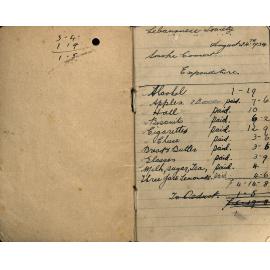 3 - 4.
1 19
1 - 5
Lebanonese Society
August 24th, 1934
Smoke Concert
Expenditure.
Alcohol 1 - 19
Apples paid. 7 - 6
Hall paid. 10
Biscuit paid. 6 - 2
Cigarettes paid. 12 - 9
Cheese paid. 3 - 6
Bread & Butter paid. 3 - 6
Glasses paid. 3 - 9
Milk, sugar, Tea, paid. 4
Three paid. 4 - 6
£ 4 - 14 - 8
To Deduct 1 - 5